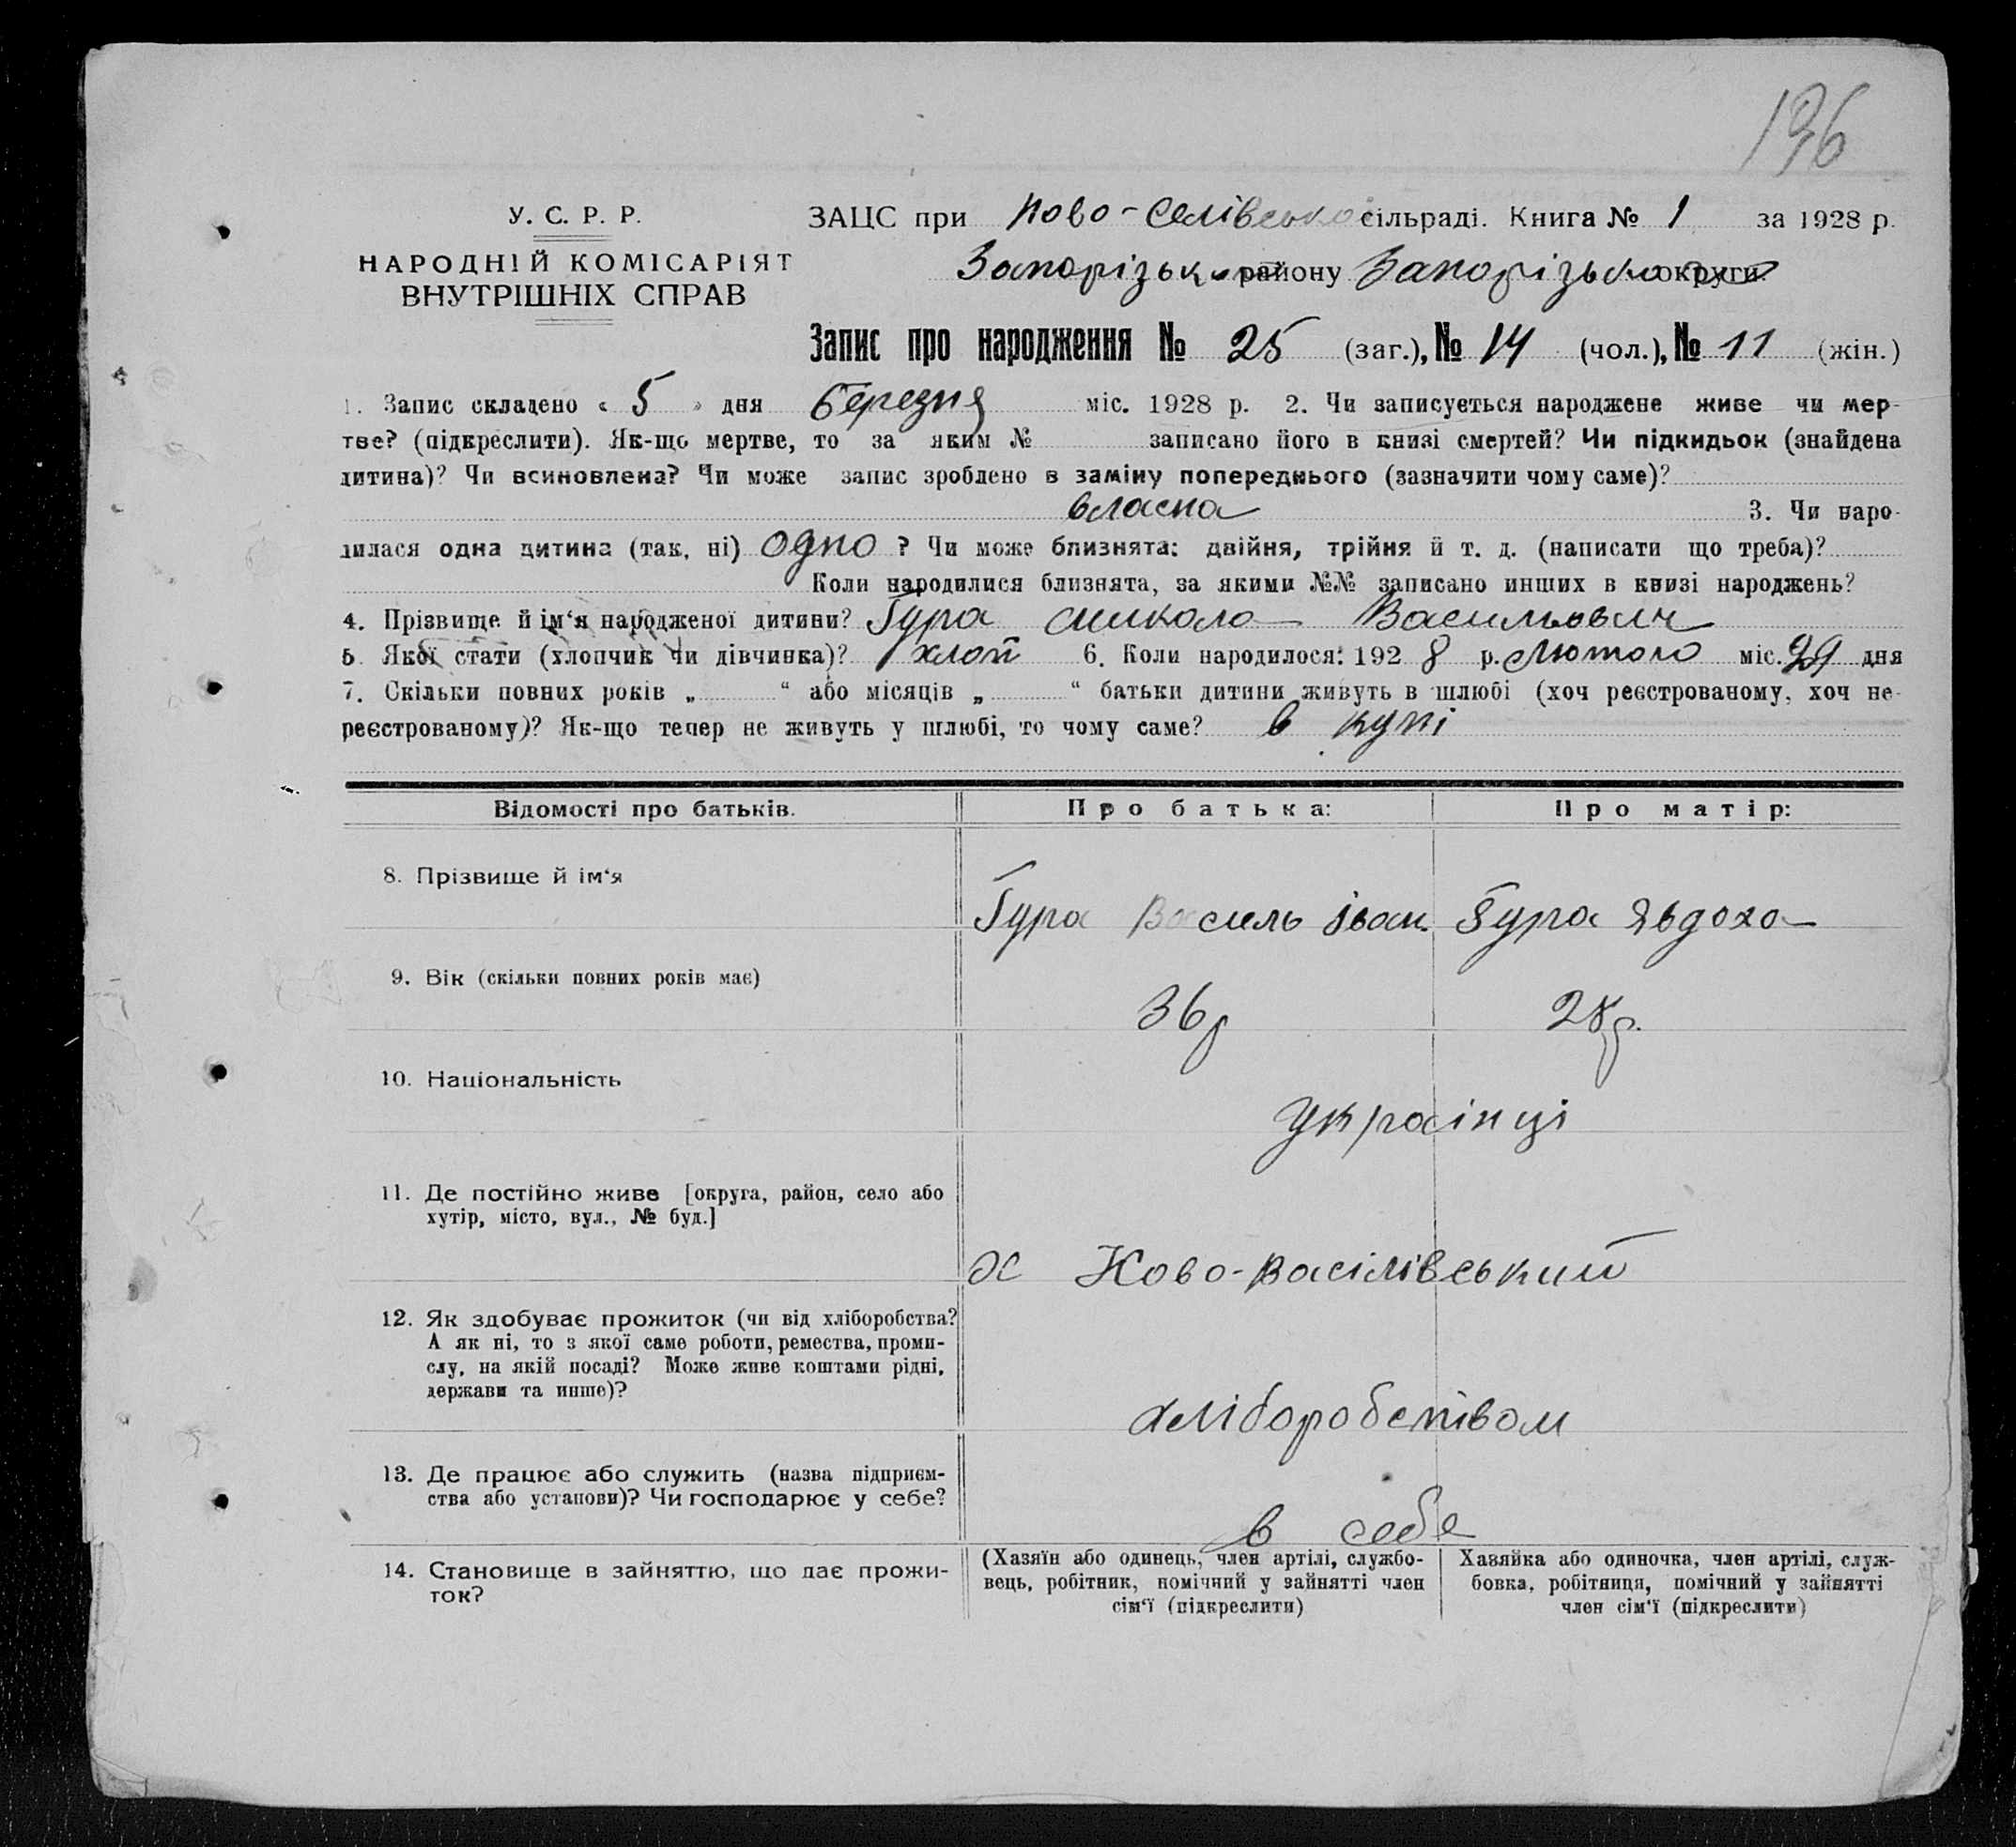 196
У. С. Р. Р.
НАРОДНІЙ КОМІСАРІЯТ
ВНУТРІШНІХ СПРАВ
ЗАЦС при Ново-Селівсько сільраді. Книга № 1 за 1928 р.
Запорізьк району Запорізько округи
Запис про народження № 25 (заг.), № 14 (чол.), № 11 (жін.)
1. Запис складено « 5 » дня березня міс. 1928 р. 2. Чи записується народжене живе чи мер-
тве? (підкреслити). Як-що мертве, то за яким № записано його в книзі смертей? Чи підкидьок (знайдена
дитина)? Чи всиновлена? Чи може запис зроблено в заміну попереднього (зазначити чому саме)?
власна 3. Чи наро-
дилася одна дитина (так, ні) одно ? Чи може близнята: двійня, трійня й т. д. (написати що треба)?
Коли народилися близнята, за якими №№ записано инших в книзі народжень?
4. Прізвище й ім‘я народженої дитини? Гура Микола Васильович
5. Якої стати (хлопчик чи дівчинка)? хлоп 6. Коли народилося: 192 8 р. Лютого міс. 29 дня
7. Скільки повних років „ “ або місяців „ “ батьки дитини живуть в шлюбі (хоч реєстрованому, хоч не-
реєстрованому)? Як-що тепер не живуть у шлюбі, то чому саме? в купі
Відомості про батьків. Про батька: Про матір:
8. Прізвище й ім‘я
Гура Василь Іван. Гура Явдоха
9. Вік (скільки повних років має)
36р 28р.
10. Національність
Українці
11. Де постійно живе [округа, район, село або
хутір, місто, вул., № буд.]
х Ново-Васілівський
12. Як здобуває прожиток (чи від хліборобства?
А як ні, то з якої саме роботи, ремества, проми-
слу, на якій посаді? Може живе коштами рідні,
держави та инше)?
хліборобством
13. Де працює або служить (назва підприєм-
ства або установи)? Чи господарює у себе?
в себе
14. Становище в зайняттю, що дає прожи-
ток?
(Хазяїн або одинець, член артілі, службо-
вець, робітник, помічний у зайнятті член
сім‘ї (підкреслити)
Хазяйка або одиночка, член артілі, служ-
бовка, робітниця, помічний у зайнятті
член сім‘ї (підкреслити)